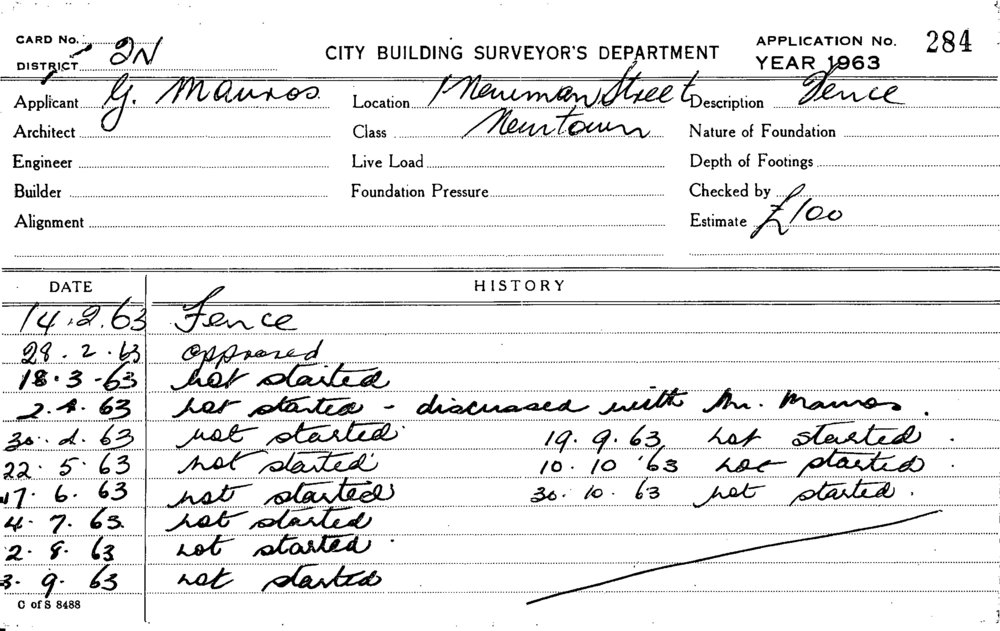 CARD No.
DISTRICT 2N
CITY BUILDING SURVEYOR'S DEPARTMENT
APPLICATION No. 284
YEAR 1963
Applicant G. Mauros
Location 1 Newman Street
Description Fence
Architect
Class Newtown
Nature of Foundation
Engineer
Live Load
Depth of Footings
Builder
Foundation Pressure
Checked by
Alignment
Estimate £100
DATE HISTORY
14.2.63 Fence
28.2.63 approved
18.3-63 not started
2.4.63 not started - discussed with Mr. Mauros.
30.4.63 not started
22.5.63 not started
17.6.63 not started
4.7.63. not started
2.8.63 not started
3.9.63 not started
19.9.63 not started.
10.10.63 not started.
30.10.63 not started.
C of S 8488